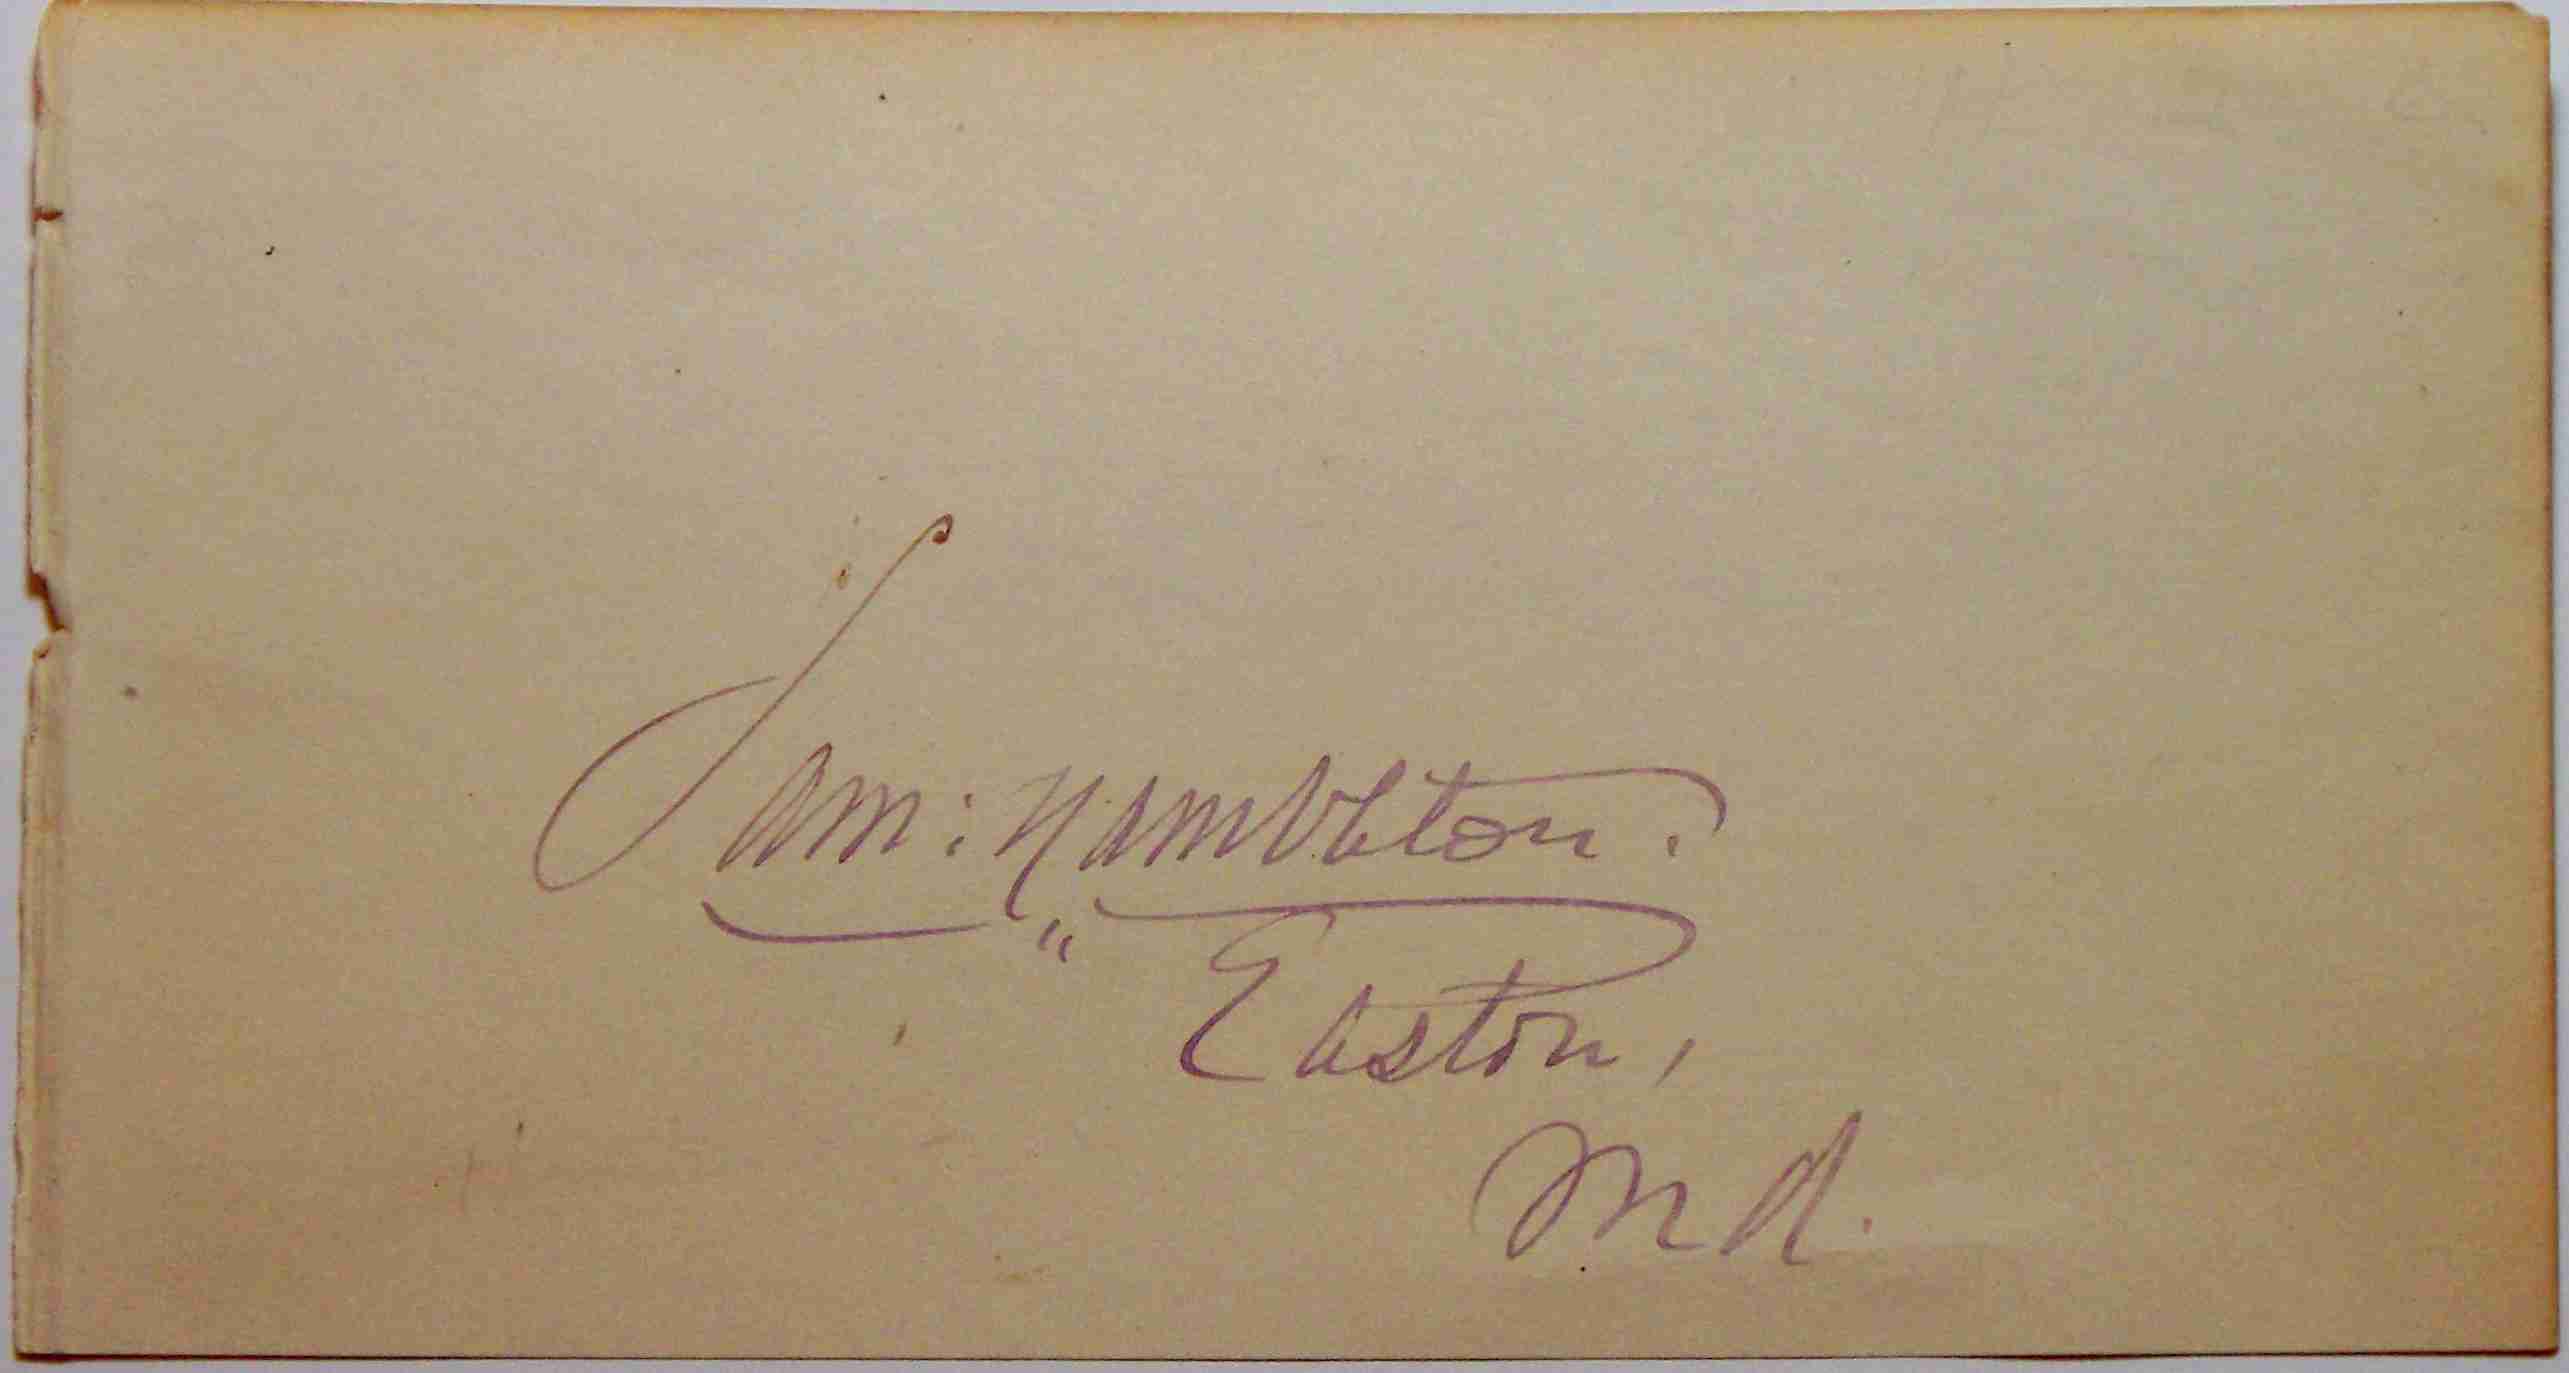 Sam: Hambleton.
Easton,
Md.